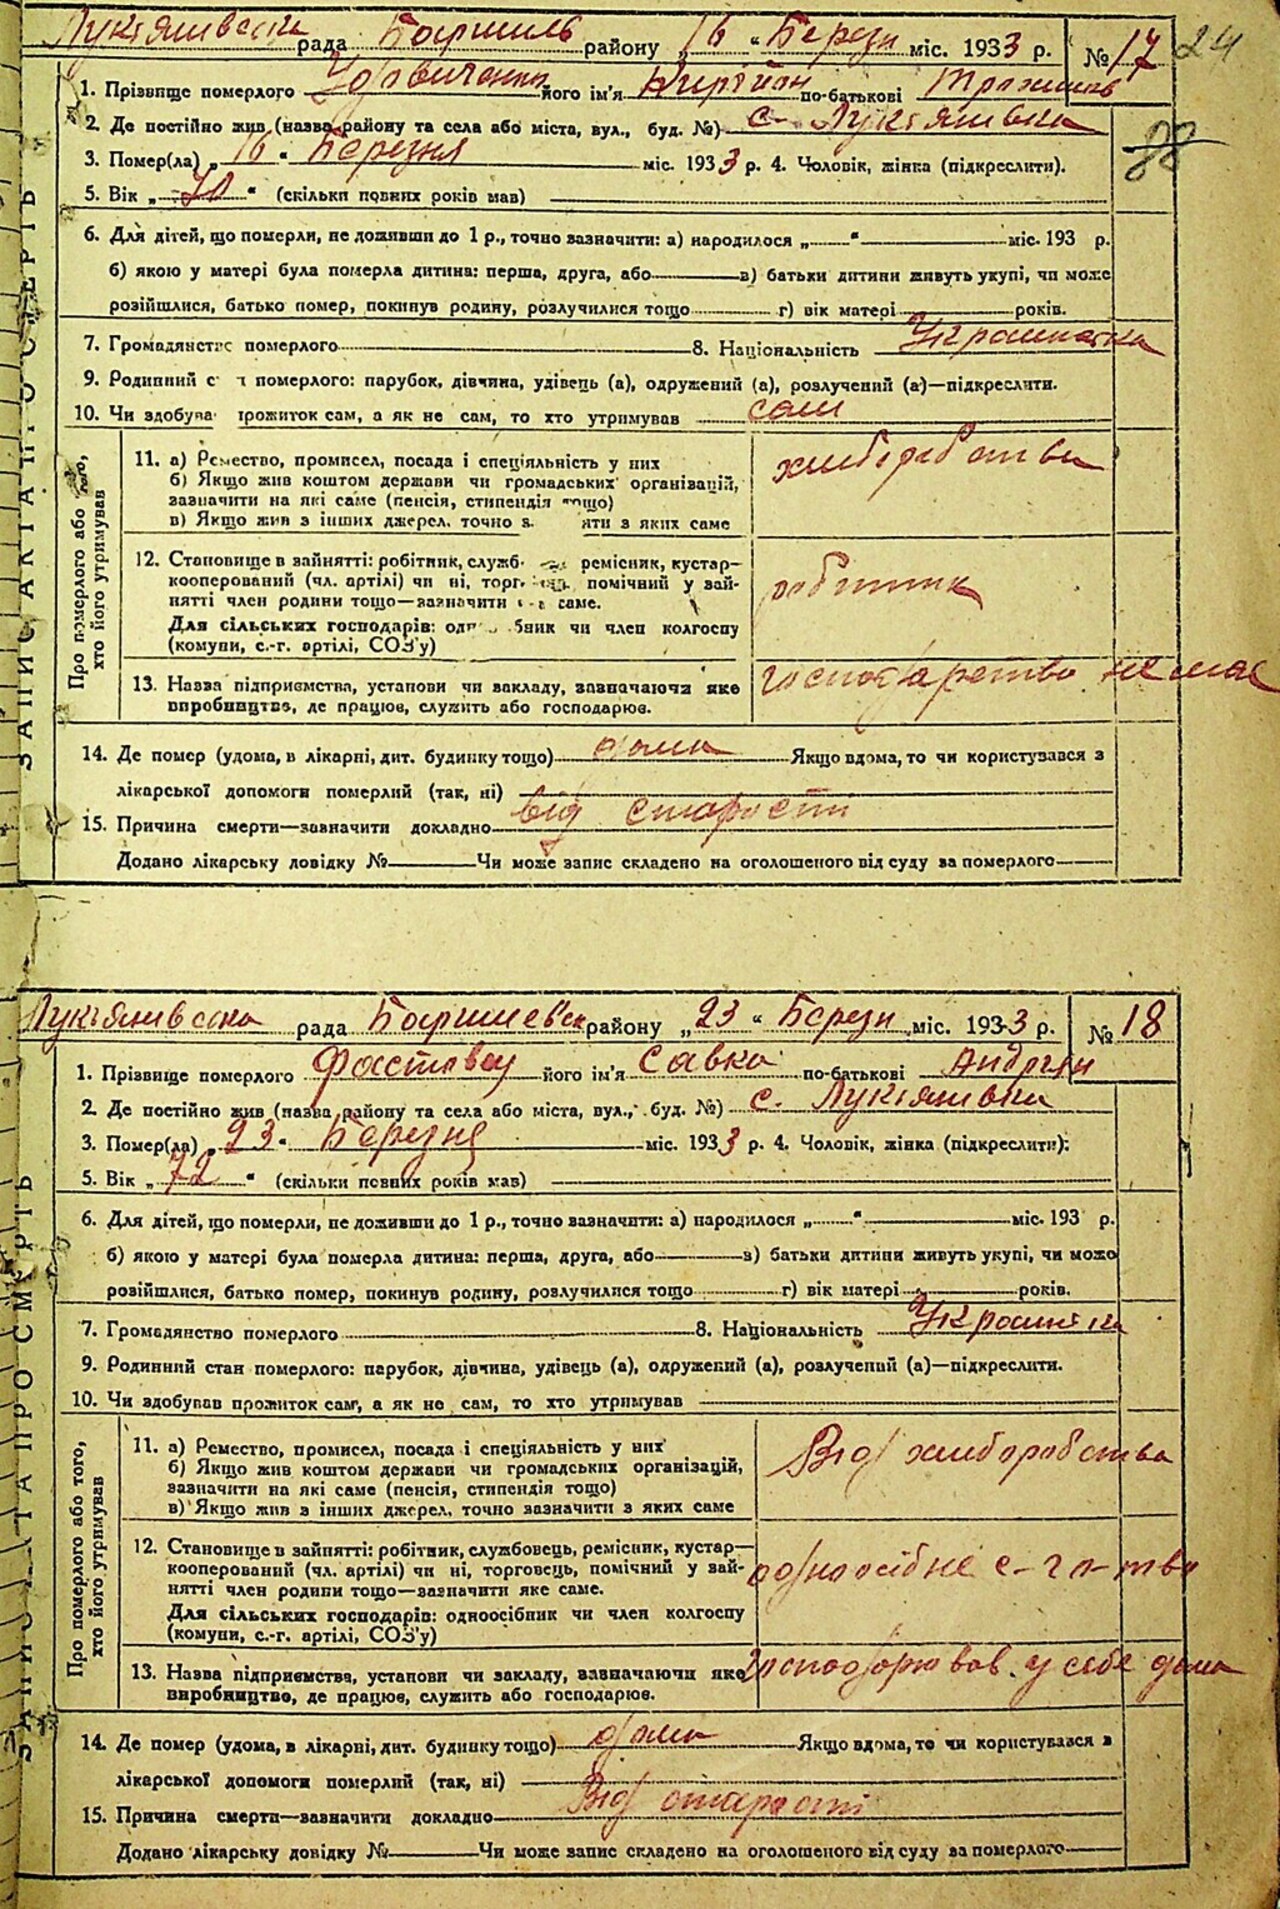 Лукʼянивська рада Баришив району 16 " Берези міс. 1933 р. № 17 24
1. Прізвище померлого Удовиченко його ім'я по-батькові
2. Де постійно жив (назва району та села або міста, вул., буд. №) с. Лукʼянивка
88
3. Помер(ла) „ 16 " Березня міс. 1933 р. 4. Чоловік, жінка (підкреслити).
5. Вік „ 70 " (скільки повних років мав)
6. Для дітей, що померли, не доживши до 1 р., точно зазначити: а) народилося „ " міс. 193 р.
б) якою у матері була померла дитина: перша, друга, або в) батьки дитини живуть укупі, чи може
розійшлися, батько помер, покинув родину, розлучилися тощо г) вік матері років.
7. Громадянство померлого 8. Національність Украинка
9. Родинний с н померлого: парубок, дівчина, удівець (а), одружений (а), розлучений (а)—підкреслити.
10. Чи здобува прожиток сам, а як не сам, то хто утримував сам
ЗАПИС АКТА ПРО СМЕРТЬ
Про померлого або того, хто його утримував
11. а) Ремество, промисел, посада і спеціяльність у них
б) Якщо жив коштом держави чи громадських організацій,
зазначити на які саме (пенсія, стипендія тощо)
в) Якщо жив з інших джерел, точно з яти з яких саме
хлиборобства
12. Становище в зайнятті: робітник, служб ремісник, кустар—
кооперований (чл. артілі) чи ні, торг помічний у зай-
нятті член родини тощо—зазначити саме.
Для сільських господарів: од бник чи член колгоспу
(комуни, с.-г. артілі, СОЗ'у)
робитник
13. Назва підприємства, установи чи закладу, зазначаючи яке
виробництво, де працює, служить або господарює.
господарство не має
14. Де помер (удома, в лікарні, дит. будинку тощо) дома Якщо вдома, то чи користувався з
лікарської допомоги померлий (так, ні)
15. Причина смерти—зазначити докладно від старости
Додано лікарську довідку № Чи може запис складено на оголошеного від суду за померлого
Лукʼянивська рада Баришевск району „ 23 " Берези міс. 1933 р. № 18
1. Прізвище померлого Фастовец його ім'я Савка по-батькові Андріян
2. Де постійно жив (назва району та села або міста, вул., буд. №) с. Лукʼянивка
3. Помер(ла) „ 23 " Березня міс. 1933 р. 4. Чоловік, жінка (підкреслити).
5. Вік „ 72 " (скільки повних років мав)
6. Для дітей, що померли, не доживши до 1 р., точно зазначити: а) народилося „ " міс. 193 р.
б) якою у матері була померла дитина: перша, друга, або в) батьки дитини живуть укупі, чи може
розійшлися, батько помер, покинув родину, розлучилися тощо г) вік матері років.
7. Громадянство померлого 8. Національність
9. Родинний стан померлого: парубок, дівчина, удівець (а), одружений (а), розлучений (а)—підкреслити.
10. Чи здобував прожиток сам, а як не сам, то хто утримував
ЗАПИС АКТА ПРО СМЕРТЬ
Про померлого або того, хто його утримував
11. а) Ремество, промисел, посада і спеціяльність у них
б) Якщо жив коштом держави чи громадських організацій,
зазначити на які саме (пенсія, стипендія тощо)
в) Якщо жив з інших джерел, точно зазначити з яких саме
Від хлиборобства
12. Становище в зайнятті: робітник, службовець, ремісник, кустар—
кооперований (чл. артілі) чи ні, торговець, помічний у зай-
нятті член родини тощо—зазначити яке саме.
Для сільських господарів: одноосібник чи член колгоспу
(комуни, с.-г. артілі, СОЗ'у)
одноосібне с-г п-тво
13. Назва підприємства, установи чи закладу, зазначаючи яке
виробництво, де працює, служить або господарює.
господорював у себе дома
14. Де помер (удома, в лікарні, дит. будинку тощо) дома Якщо вдома, то чи користувався з
лікарської допомоги померлий (так, ні)
15. Причина смерти—зазначити докладно Від старості
Додано лікарську довідку № Чи може запис складено на оголошеного від суду за померлого